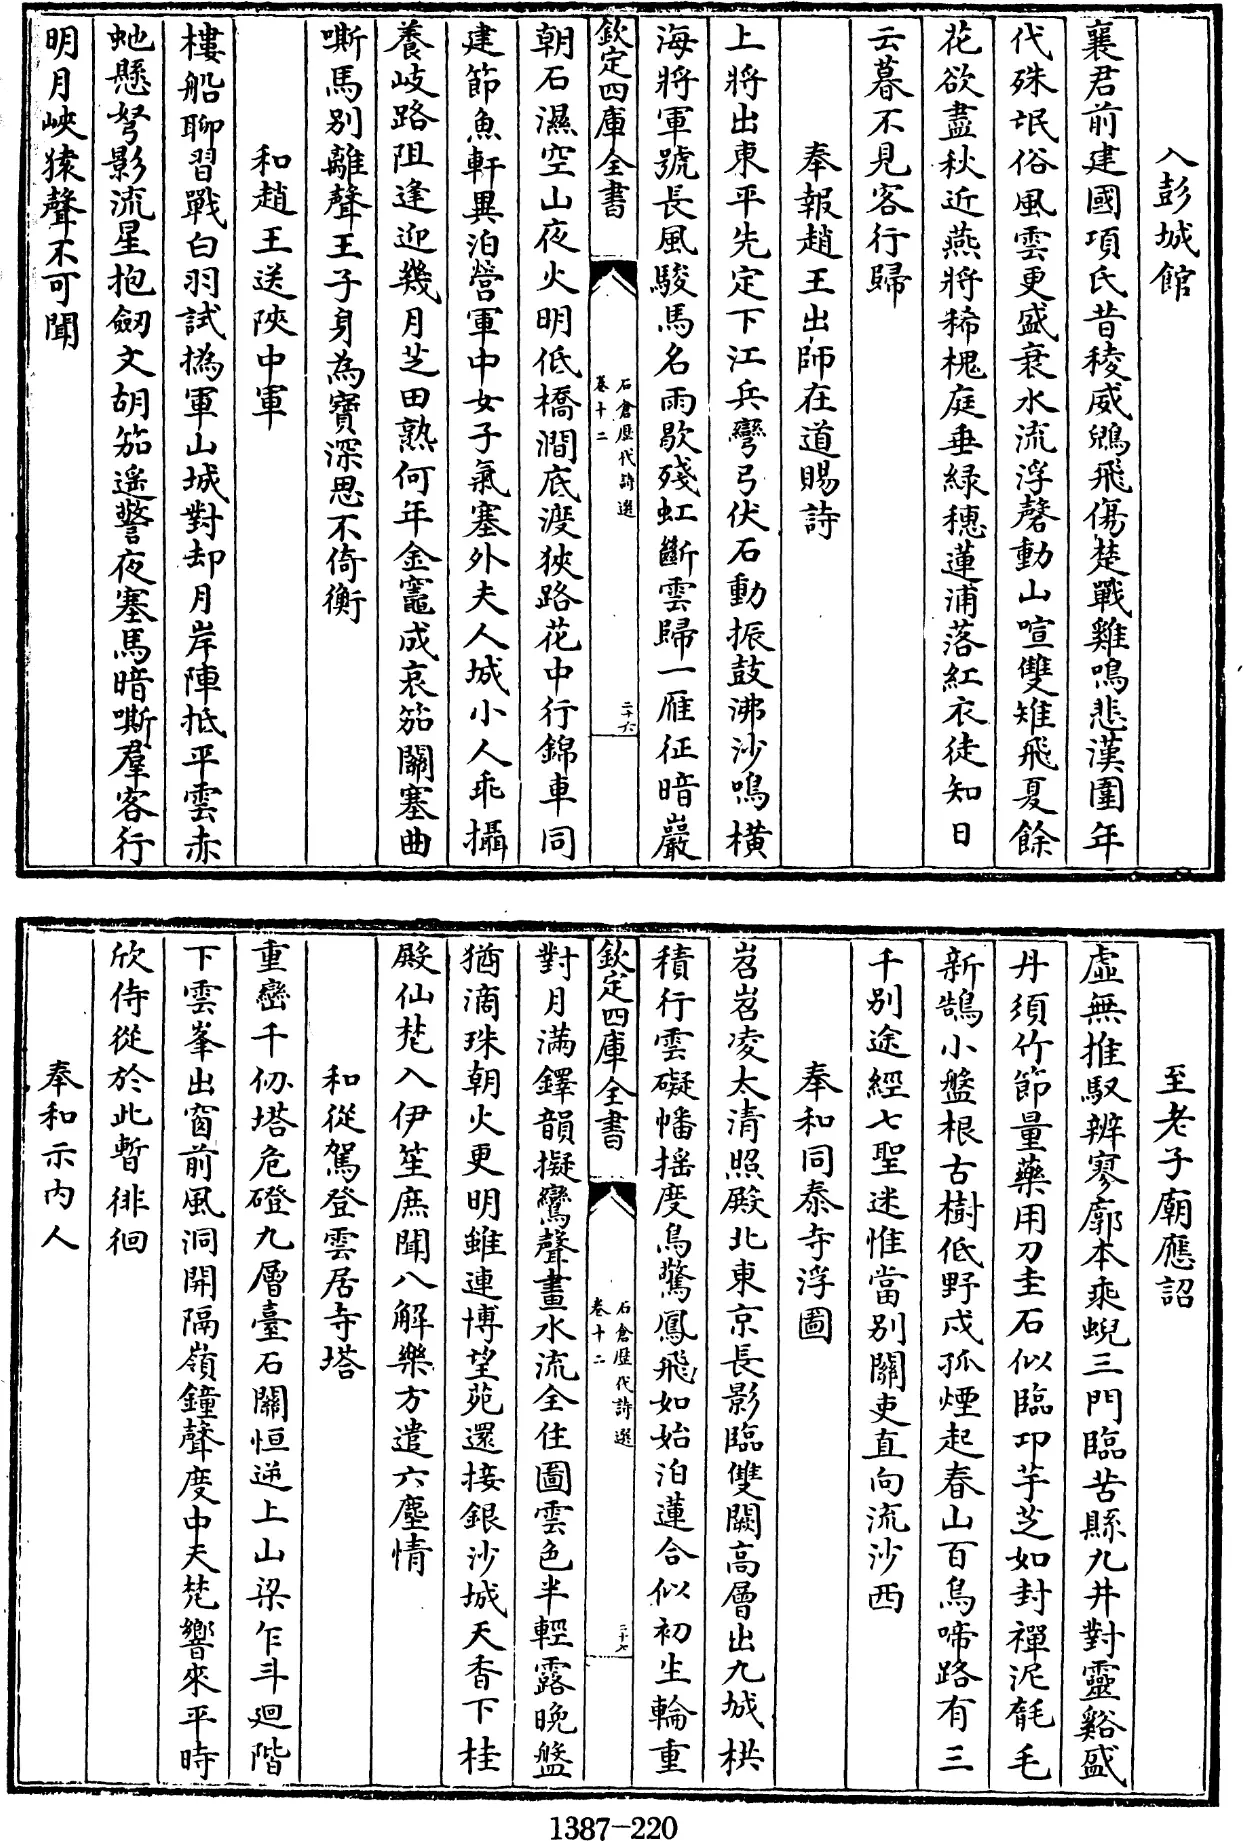 入彭城館
襄君前建國項氏昔稜威鵶飛傷楚戰雞鳴悲漢圍年
代殊氓俗風雲更盛衰水流浮磬動山喧雙雉飛夏餘
花欲盡秋近燕將稀槐庭垂綠穗蓮浦落紅衣徒知日
云暮不見客行歸
奉報趙王出師在道賜詩
上將出東平先定下江兵彎弓伏石動振鼓沸沙鳴橫
海將軍號長風駿馬名雨歇殘虹斷雲歸一雁征暗巖
欽定四庫全書
石倉歷代詩選
卷十二
二十六
朝石濕空山夜火明低橋澗底渡狹路花中行錦車同
建節魚軒異泊營軍中女子氣塞外夫人城小人乖攝
養岐路阻逢迎幾月芝田熟何年金竈成哀笳關塞曲
嘶馬別離聲王子身為寶深思不倚衡
和趙王送陜中軍
樓船聊習戰白羽試撝軍山城對却月岸陣抵平雲赤
虵懸弩影流星抱劒文胡笳遥警夜塞馬暗嘶羣客行
明月峽猿聲不可聞
至老子廟應詔
虛無推馭辨寥廓本乘蜺三門臨苦縣九井對靈谿盛
丹須竹節量藥用刀圭石似臨卬芋芝如封禪泥毻毛
新鵠小盤根古樹低野戍孤煙起春山百鳥啼路有三
千別途經七聖迷惟當別關吏直向流沙西
奉和同泰寺浮圖
岧岧凌太清照殿北東京長影臨雙闕高層出九城栱
積行雲礙幡揺度鳥驚鳳飛如始泊蓮合似初生輪重
欽定四庫全書
石倉歷代詩選
卷十二
二十七
對月滿鐸韻擬鸞聲畫水流全住圖雲色半輕露晚盤
猶滴珠朝火更明雖連博望苑還接銀沙城天香下桂
殿仙梵入伊笙庶聞八解樂方遣六塵情
和從駕登雲居寺塔
重巒千仞塔危磴九層臺石關恒逆上山梁乍斗迴階
下雲峯出窗前風洞開隔嶺鐘聲度中天梵響來平時
欣侍從於此暫徘徊
奉和示内人
1387-220